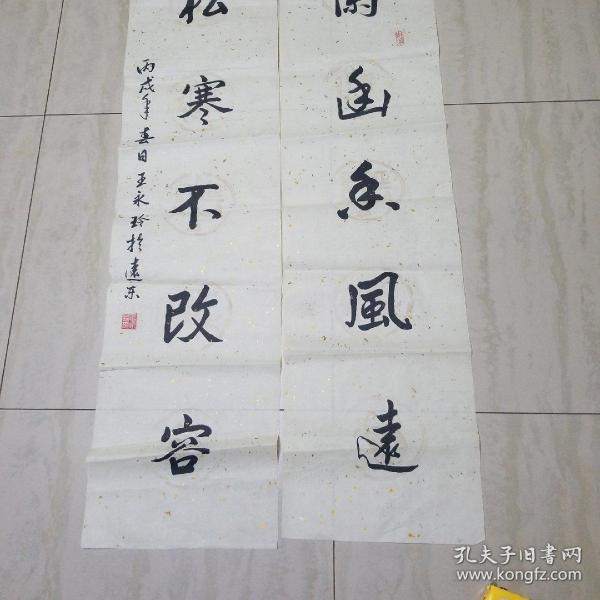 蘭幽香風遠
松寒不改容
丙戌年春日王永玲於遠东
孔夫子旧書网
www.kongfz.com